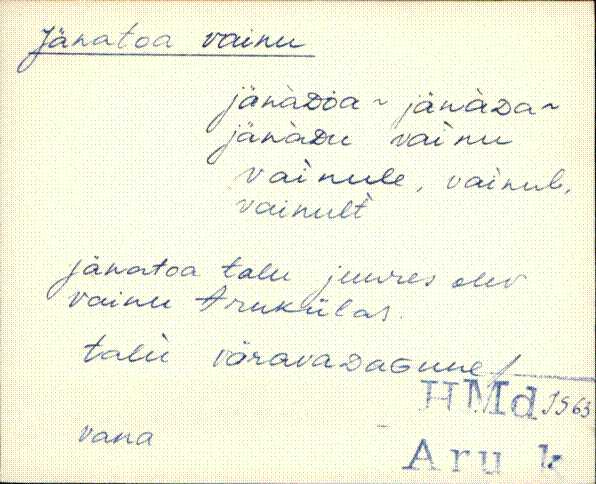 Jänatoa vainu
jänàDòa ~ jänàDa ~
jänàDu vaìnu
vaìnule, vaìnul,
vaìnult
jänatoa talu juures olev
vainu Arukülas.
talù väravaDaGune
HMd 1963
vana
Aru k